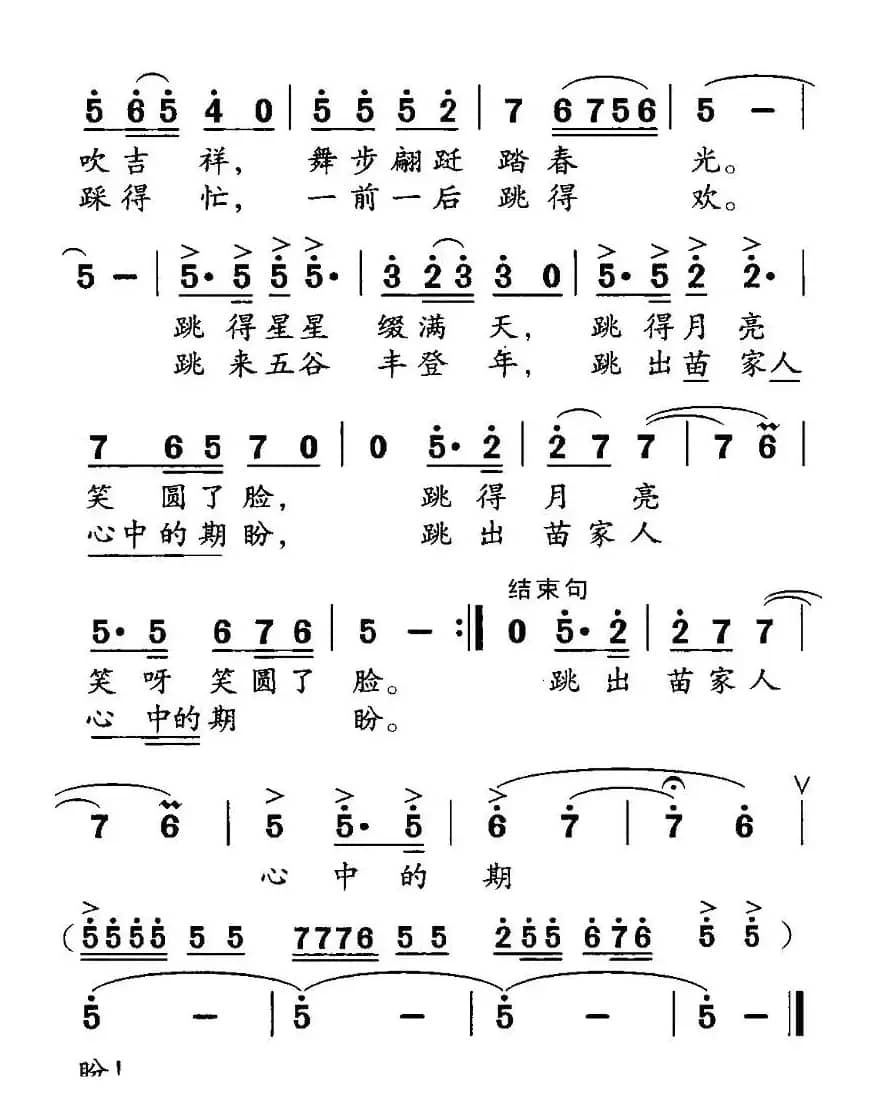 5 6 5 4 0 | 5 5 5 2 | 7 6 7 5 6 | 5 – |
吹吉祥，舞步翩跹踏春光。
踩得忙，一前一后跳得欢。
5 – | 5· 5 5 5· | 3 2 3 3 0 | 5· 5 2 2· |
跳得星星缀满天，跳得月亮
跳来五谷丰登年，跳出苗家人
7 6 5 7 0 | 0 5· 2 | 2 7 7 | 7 6 |
笑圆了脸，跳得月亮
心中的期盼，跳出苗家人
结束句
5· 5 6 7 6 | 5 – :‖ 0 5· 2 | 2 7 7 |
笑呀笑圆了脸。跳出苗家人
心中的期盼。
7 6 | 5 5· 5 | 6 7 | 7 6 |
心中的期
（5555 5 5 7776 5 5 255 676 5 5）
5 – | 5 – | 5 – | 5 – ‖
盼！